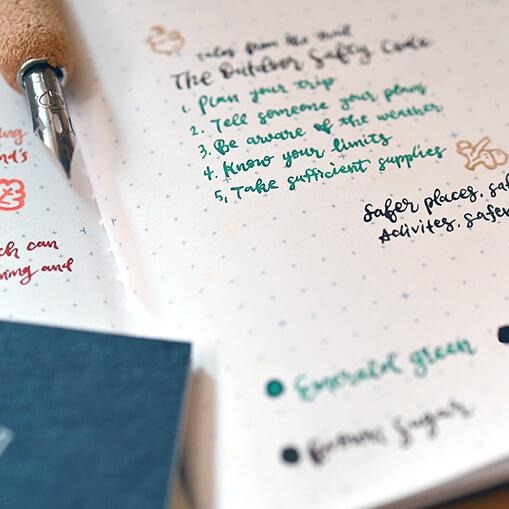 ing
nd's
ch can
ning and
from the trail
The Outdoor Safty Code
1. Plan your trip
2. Tell someone your plans
3. Be aware of the weather
4. Know your limits
5. Take sufficient supplies
Safer places, saf
Activites, safer
Emerald green
Sugar